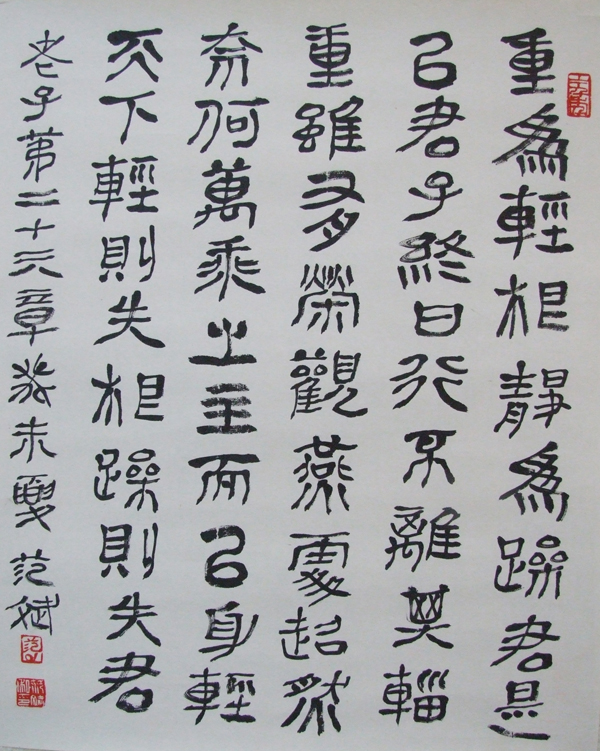 重為輕根靜為躁君是
以君子終日行不離其輜
重雖有榮觀燕處超然
奈何萬乘之主而以身輕
天下輕則失根躁則失君
老子第二十六章癸未夏范斌